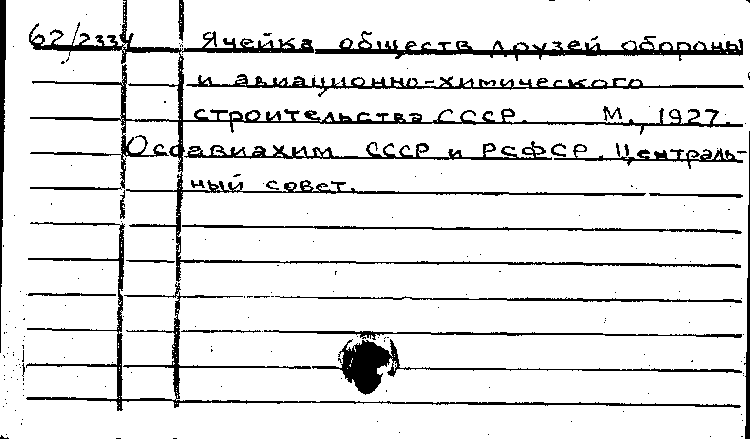 62/2334 Ячейка обществ друзей обороны
и авиационно-химического
строительства СССР. М., 1927.
Осоавиахим СССР и РСФСР. Централь-
ный совет.